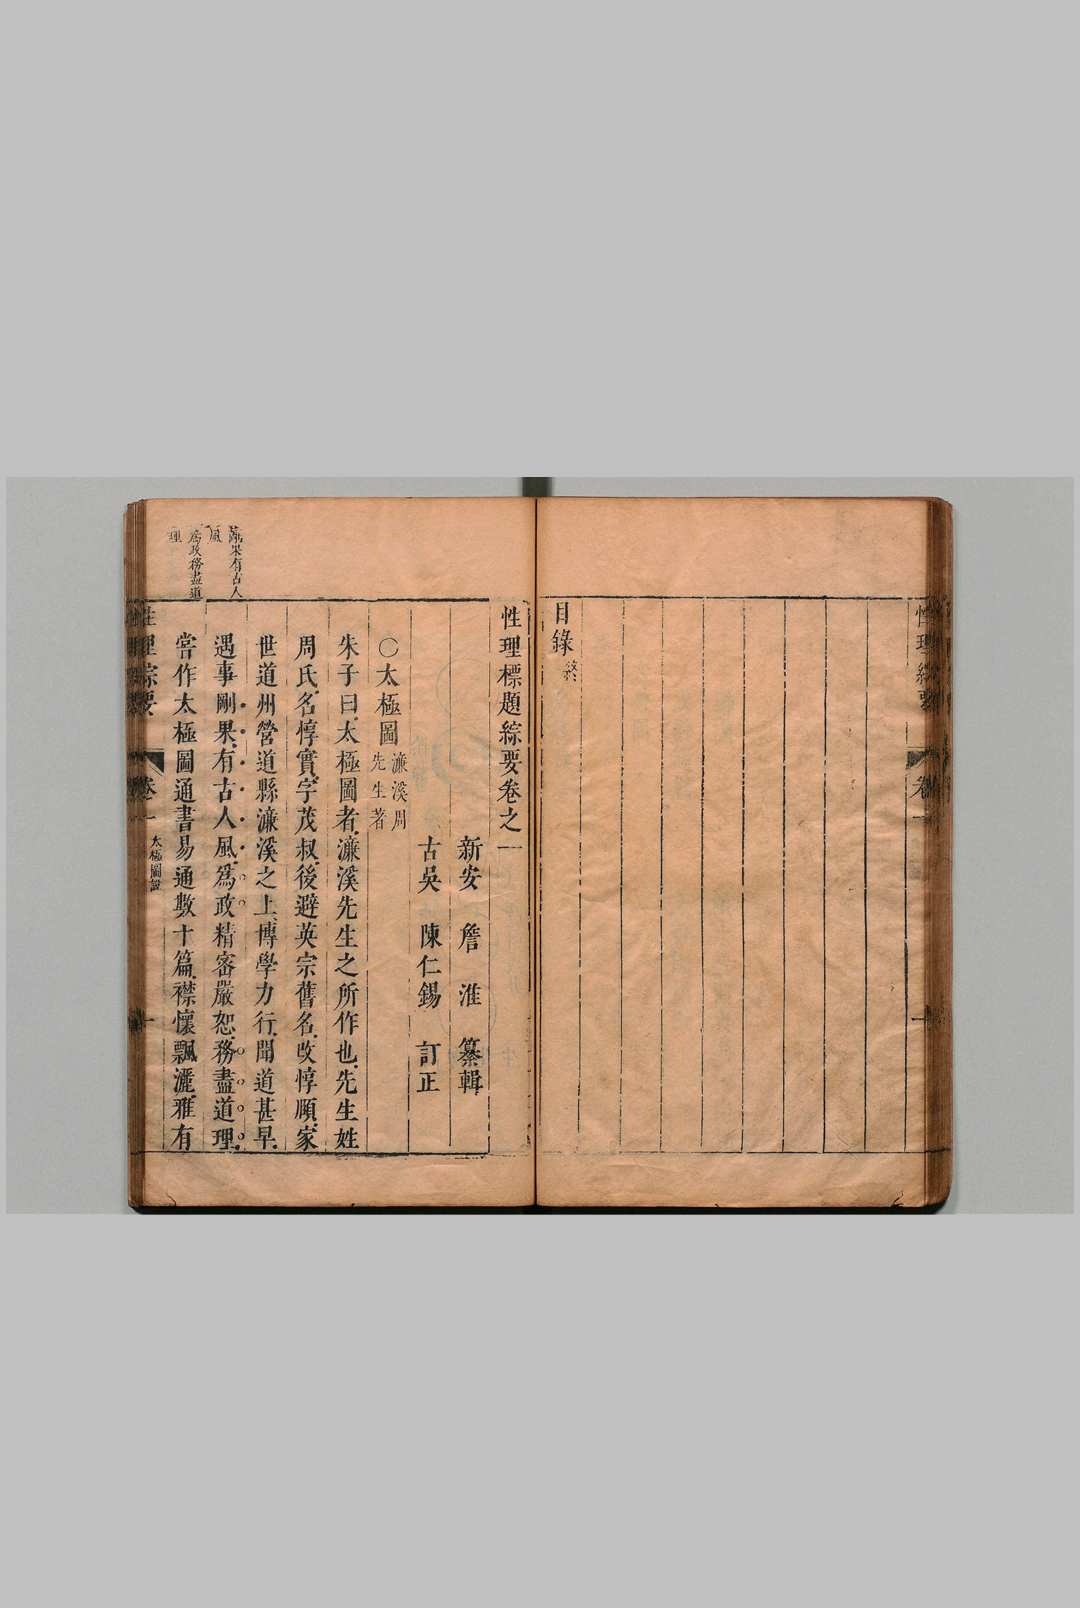 目錄終
性理綜要
卷一
一
性理標題綜要卷之一
新安 詹 淮 纂輯
古吳 陳仁錫 訂正
○太極圖 濂溪周先生著
朱子曰太極圖者濂溪先生之所作也先生姓
周氏名惇實字茂叔後避英宗舊名改惇頤家
世道州營道縣濂溪之上博學力行聞道甚早
遇事剛果有古人風爲政精密嚴恕務盡道理
嘗作太極圖通書易通數十篇襟懷飄灑雅有
剛果有古人
風
爲政務盡道
理
性理綜要
卷一
太極圖說
一